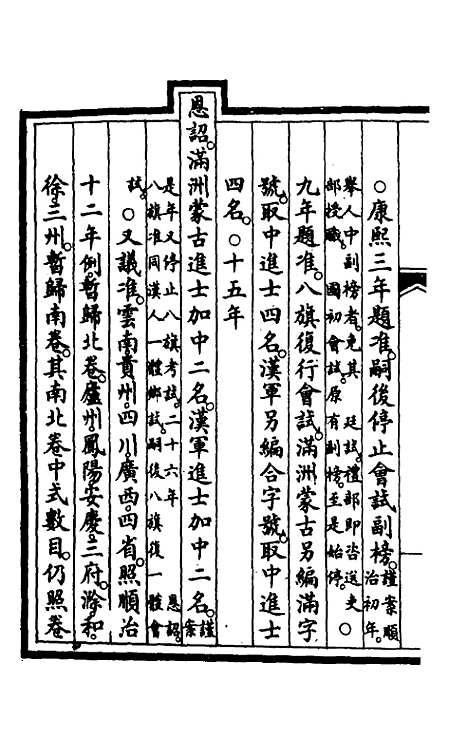 ○康熙三年題准。嗣後停止會試副榜。謹案順治初年。
舉人中副榜者。免其 廷試。禮部即咨送吏
部授職。 國初會試。原有副榜。至是始停。○
九年題准。八旗復行會試。滿洲蒙古另編滿字
號。取中進士四名。漢軍另編合字號。取中進士
四名。○十五年
恩詔。滿洲蒙古進士加中二名。漢軍進士加中二名。謹案
是年又停止八旗考試。二十六年 恩詔。
八旗准同漢人一體鄉試。嗣後八旗復一體會
試。○又議准。雲南。貴州。四川。廣西。四省。照順治
十二年例。暫歸北卷。廬州。鳳陽。安慶。三府。滁。和。
徐。三州。暫歸南卷。其南北卷中式數目。仍照卷